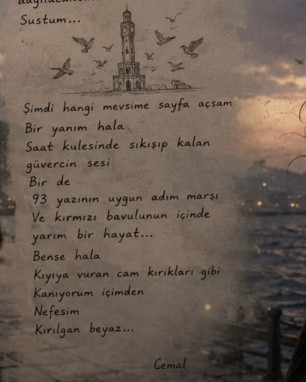 Sustum...
Şimdi hangi mevsime sayfa açsam
Bir yanım hala
Saat kulesinde sıkışıp kalan
güvercin sesi
Bir de
93 yazının uygun adım marşı
Ve kırmızı bavulunun içinde
yarım bir hayat...
Bense hala
Kıyıya vuran cam kırıkları gibi
Kanıyorum içimden
Nefesim
Kırılgan beyaz...
Cemal